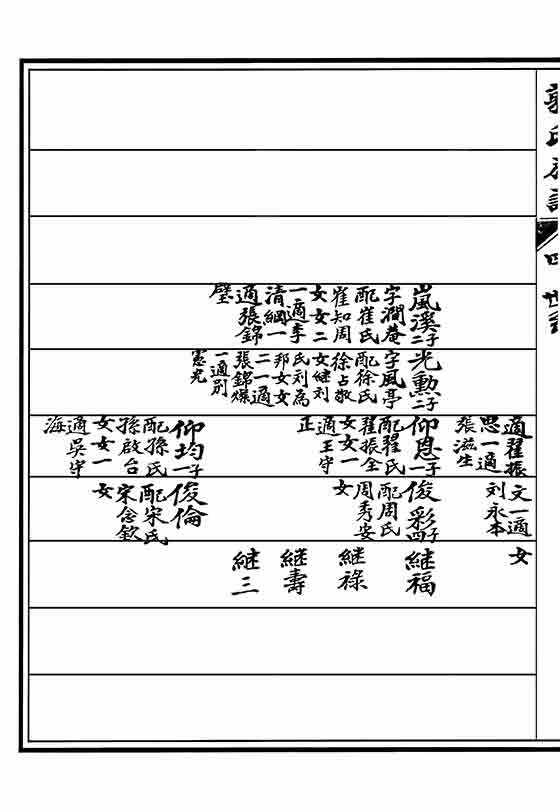 四世
嵐溪二子
字潤菴
配崔氏
崔知周
女女二
一適李
清綱一
適張錦
璧
光勲二子
字風亭
配徐氏
徐占敬
女継刘
氏刘為
邦女女
二一適
張錦
一適別
憲光
適翟振
思一適
張滋生
仰恩一子
配翟氏
翟振全
女女一
適王守
正
仰均一子
配孫氏
孫啟台
女女一
適吳守
海
文一適
刘永本
俊彩四子
配周氏
周秀安
女
俊倫
配宋氏
宋念欽
女
女
継福
継祿
継壽
継三